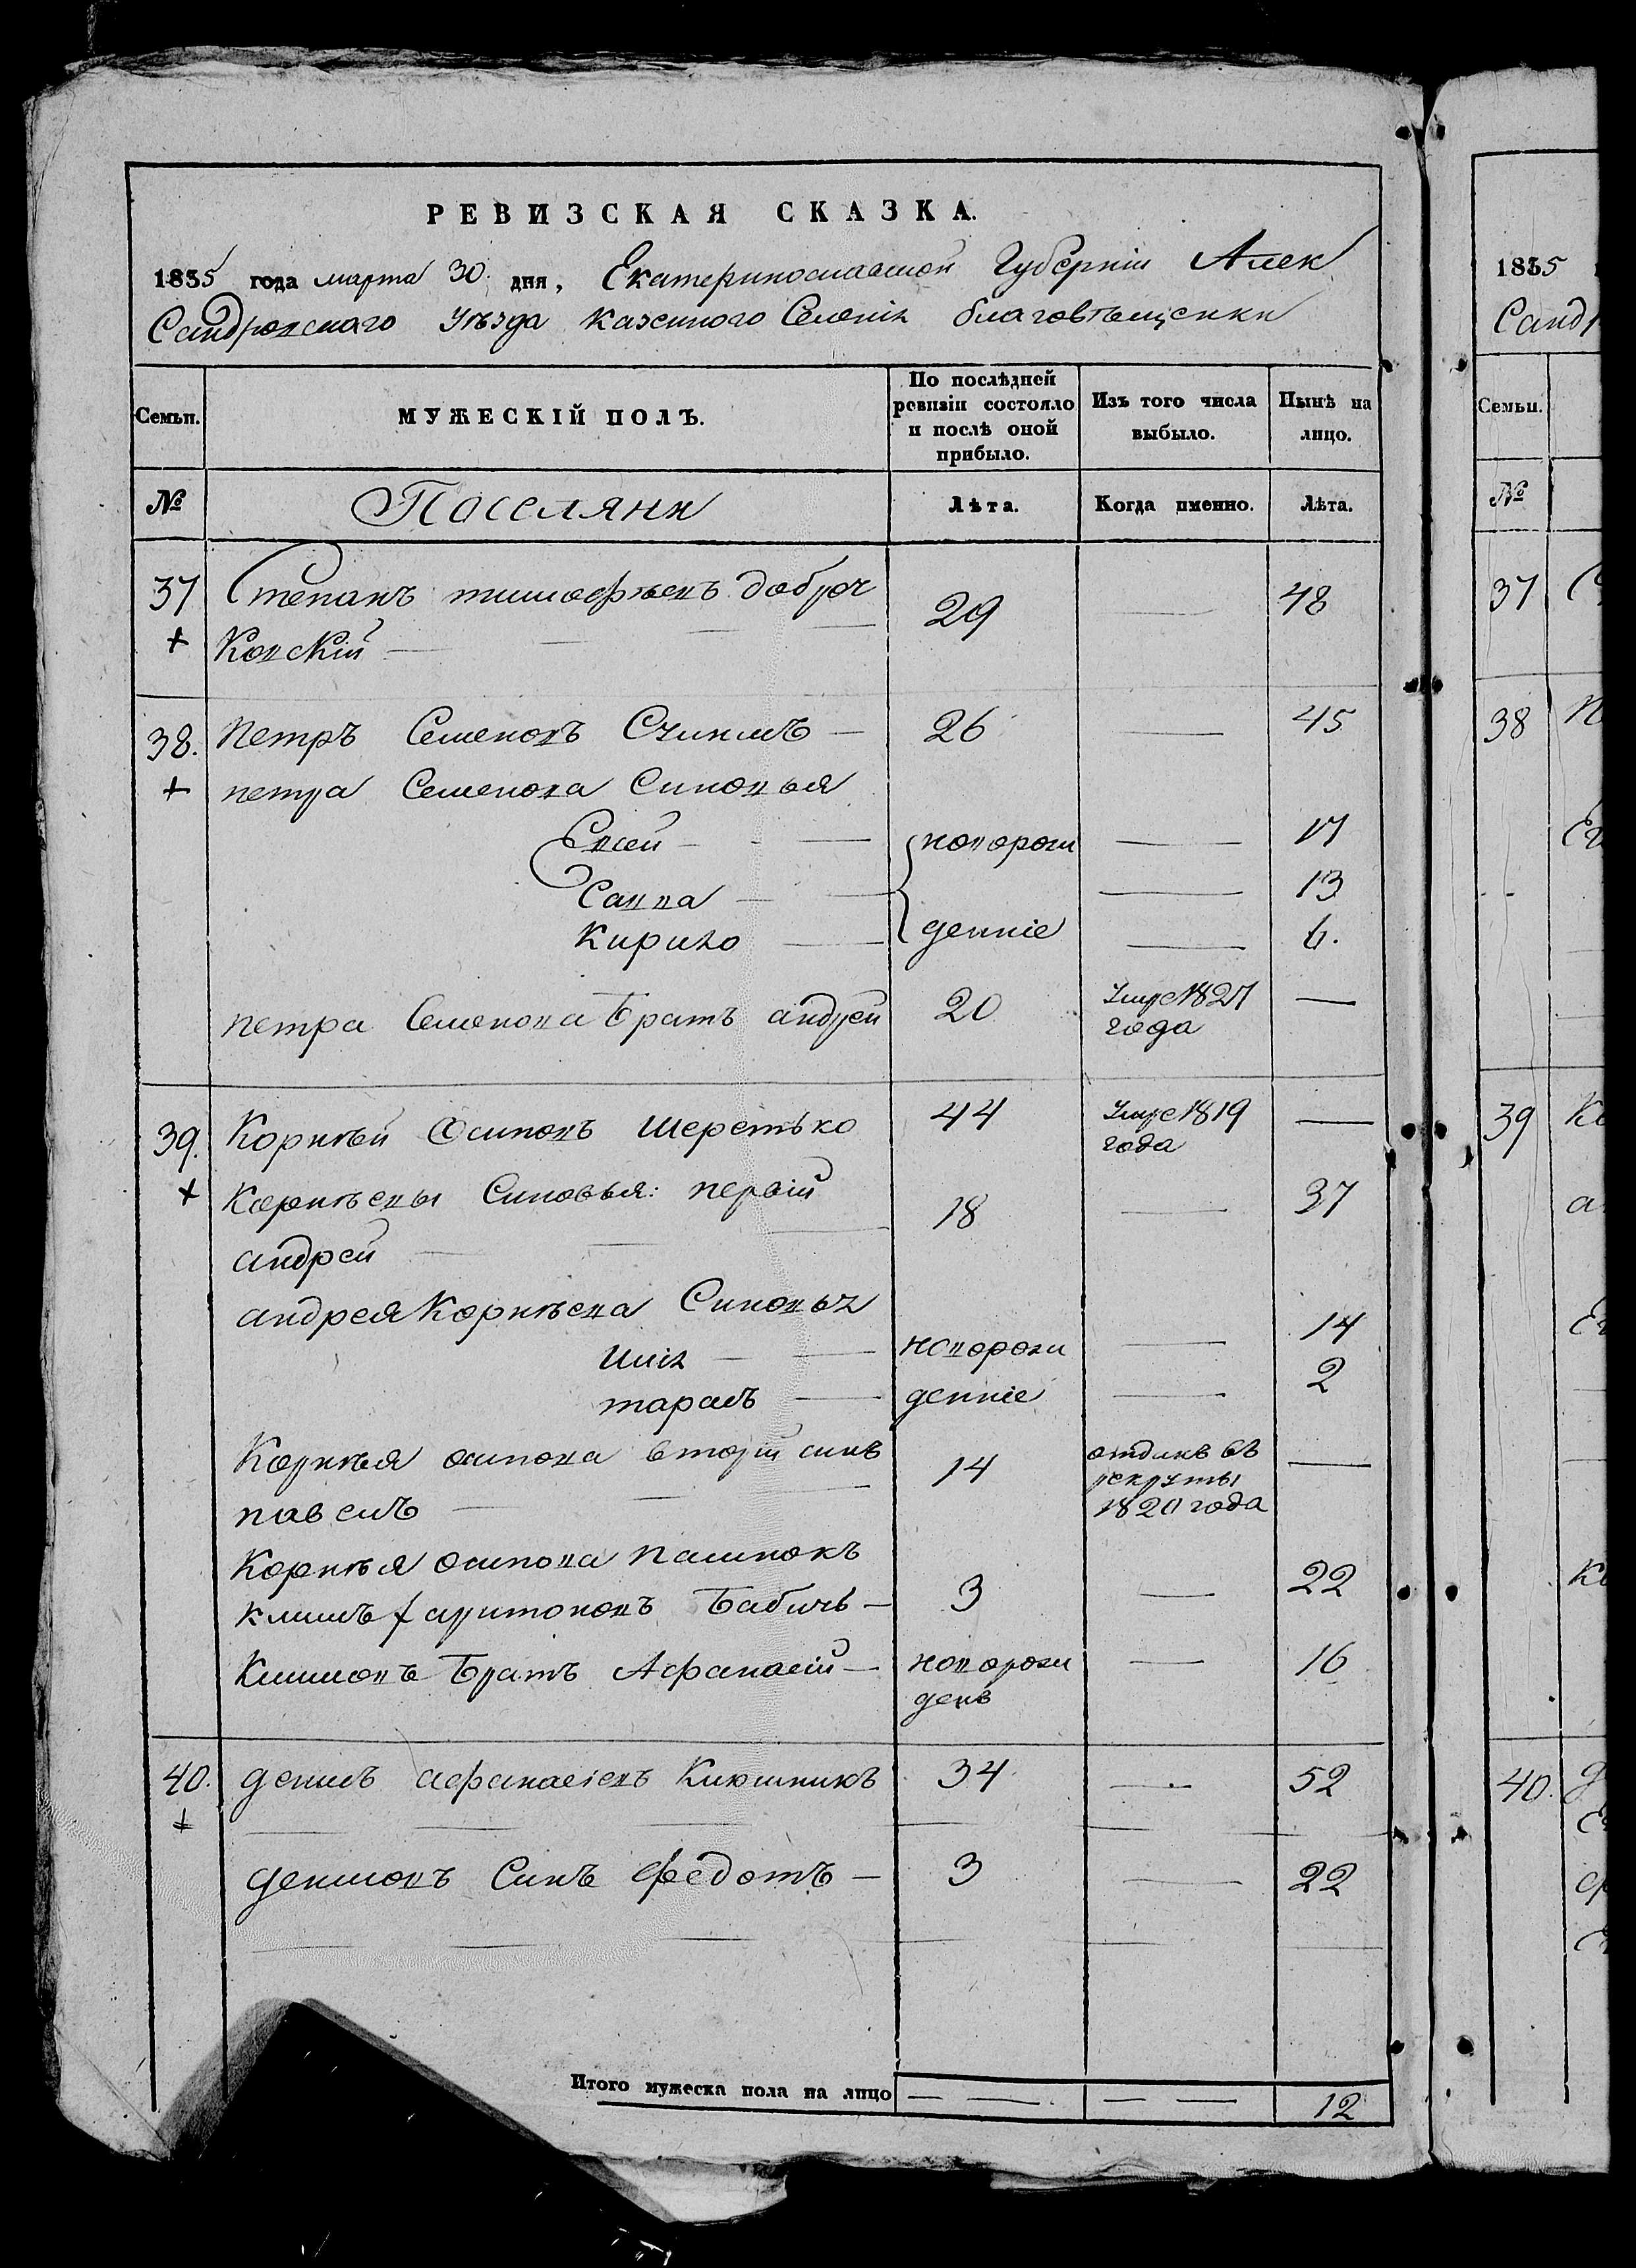 РЕВИЗСКАЯ СКАЗКА.
1835 года марта 30 дня, Екатеринославской Губернiи Алек
Сандровского Уѣзда казенного Селенiя благовѣщенки
Семьи.
МУЖЕСКIЙ ПОЛЪ.
По послѣдней ревизiи состояло и послѣ оной прибыло.
Изъ того числа выбыло.
Нынѣ на лицо.
№
Поселяни
Лѣта.
Когда именно.
Лѣта.
37 Степанъ тимофѣевъ доброч 29 — 48
+ Ковскiй —
38. петръ Семеновъ — 26 — 45
+ петра Семенова Синовья
Евсей — новорож — 17
Савва — — 13
Кирило — деннiе — 6.
петра Семенова Братъ андрей 20 Умре 1827 —
года
39. Корнѣй Осиповъ Шеретько 44 Умре 1819 —
года
+ Корнѣевы Синовья: первiй 18 — 37
андрей —
андрея Корнѣева Синовья
Илiя — новорож — 14
тарасъ — деннiе — 2
Корнѣя осипова вторiй синъ 14 отданъ въ —
павелъ — рекруты
1820 года
Корнѣя осипова пасинокъ
климъ харитоновъ Бабичь — 3 — 22
Климовъ Братъ Афанасiй — новорож — 16
денъ
40. денисъ афанасiевъ Ключникъ 34 — 52
+
денисовъ Синъ федотъ — 3 — 22
Итого мужеска пола на лицо — — — — 12
1835
Санд
Семьи.
№
37
38
39
40.